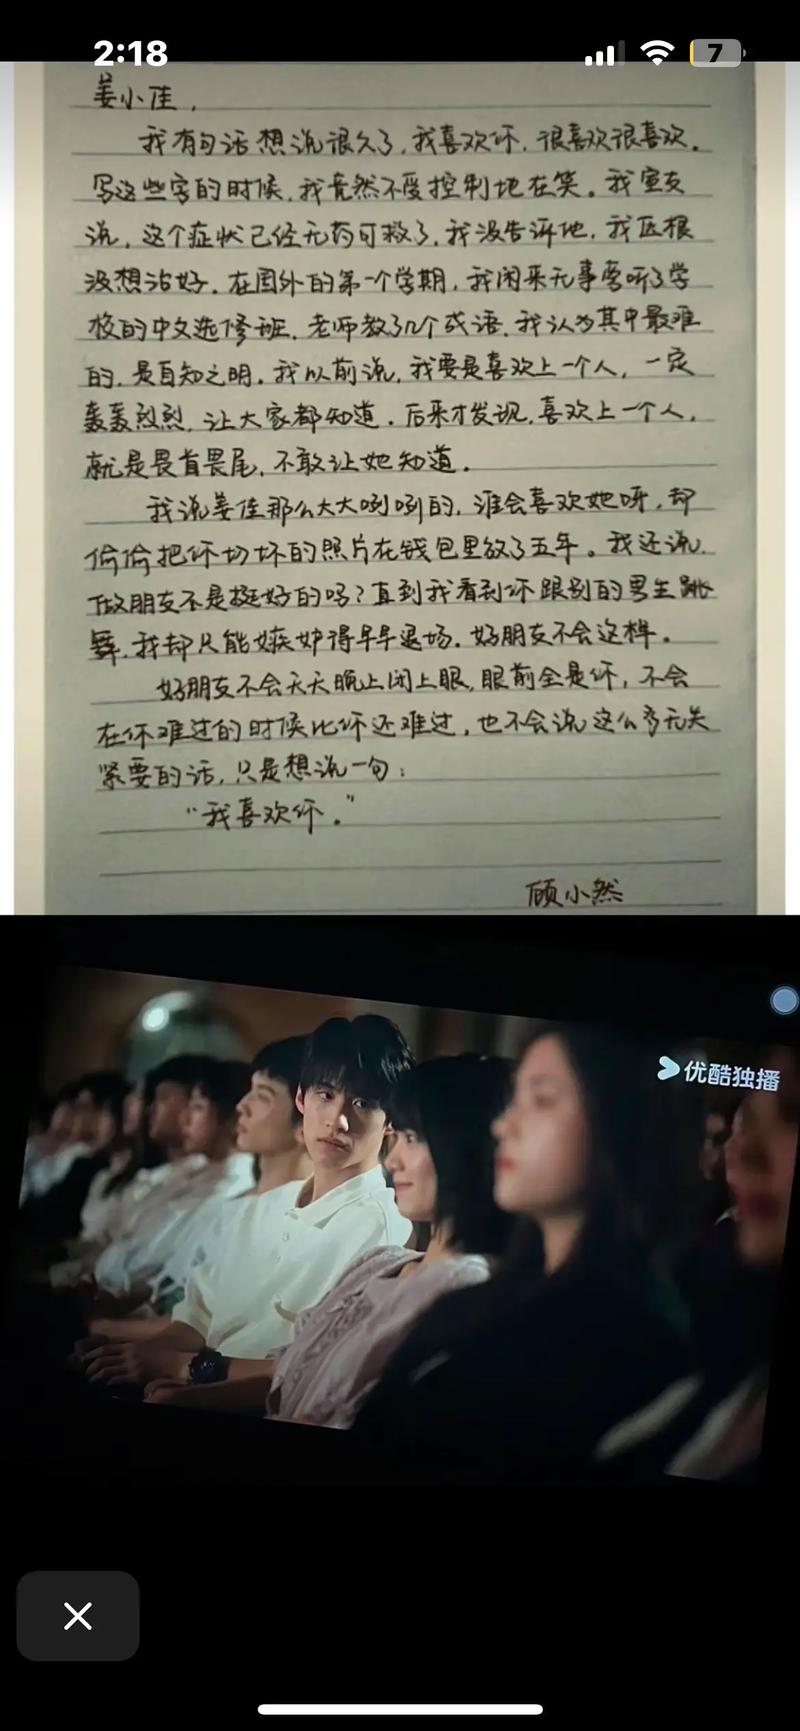 2:18
7
姜小佳，
我有句话想说很久了，我喜欢你，很喜欢很喜欢。
写这些字的时候，我竟然不受控制地在笑。我室友
说，这个症状已经无药可救了，我没告诉他，我压根
没想治好。在国外的第一个学期，我闲来无事旁听了学
校的中文选修班，老师教了几个成语，我认为其中最难
的，是自知之明。我以前说，我要是喜欢上一个人，一定
轰轰烈烈，让大家都知道。后来才发现，喜欢上一个人，
就是畏首畏尾，不敢让她知道。
我说姜佳那么大大咧咧的，谁会喜欢她呀，却
偷偷把你切坏的照片在钱包里放了五年。我还说，
做朋友不是挺好的吗？直到我看到你跟别的男生跳
舞，我却只能嫉妒得早早退场。好朋友不会这样。
好朋友不会天天晚上闭上眼，眼前全是你，不会
在你难过的时候比你还难过，也不会说这么多无关
紧要的话，只是想说一句：
“我喜欢你。”
顾小然
优酷独播